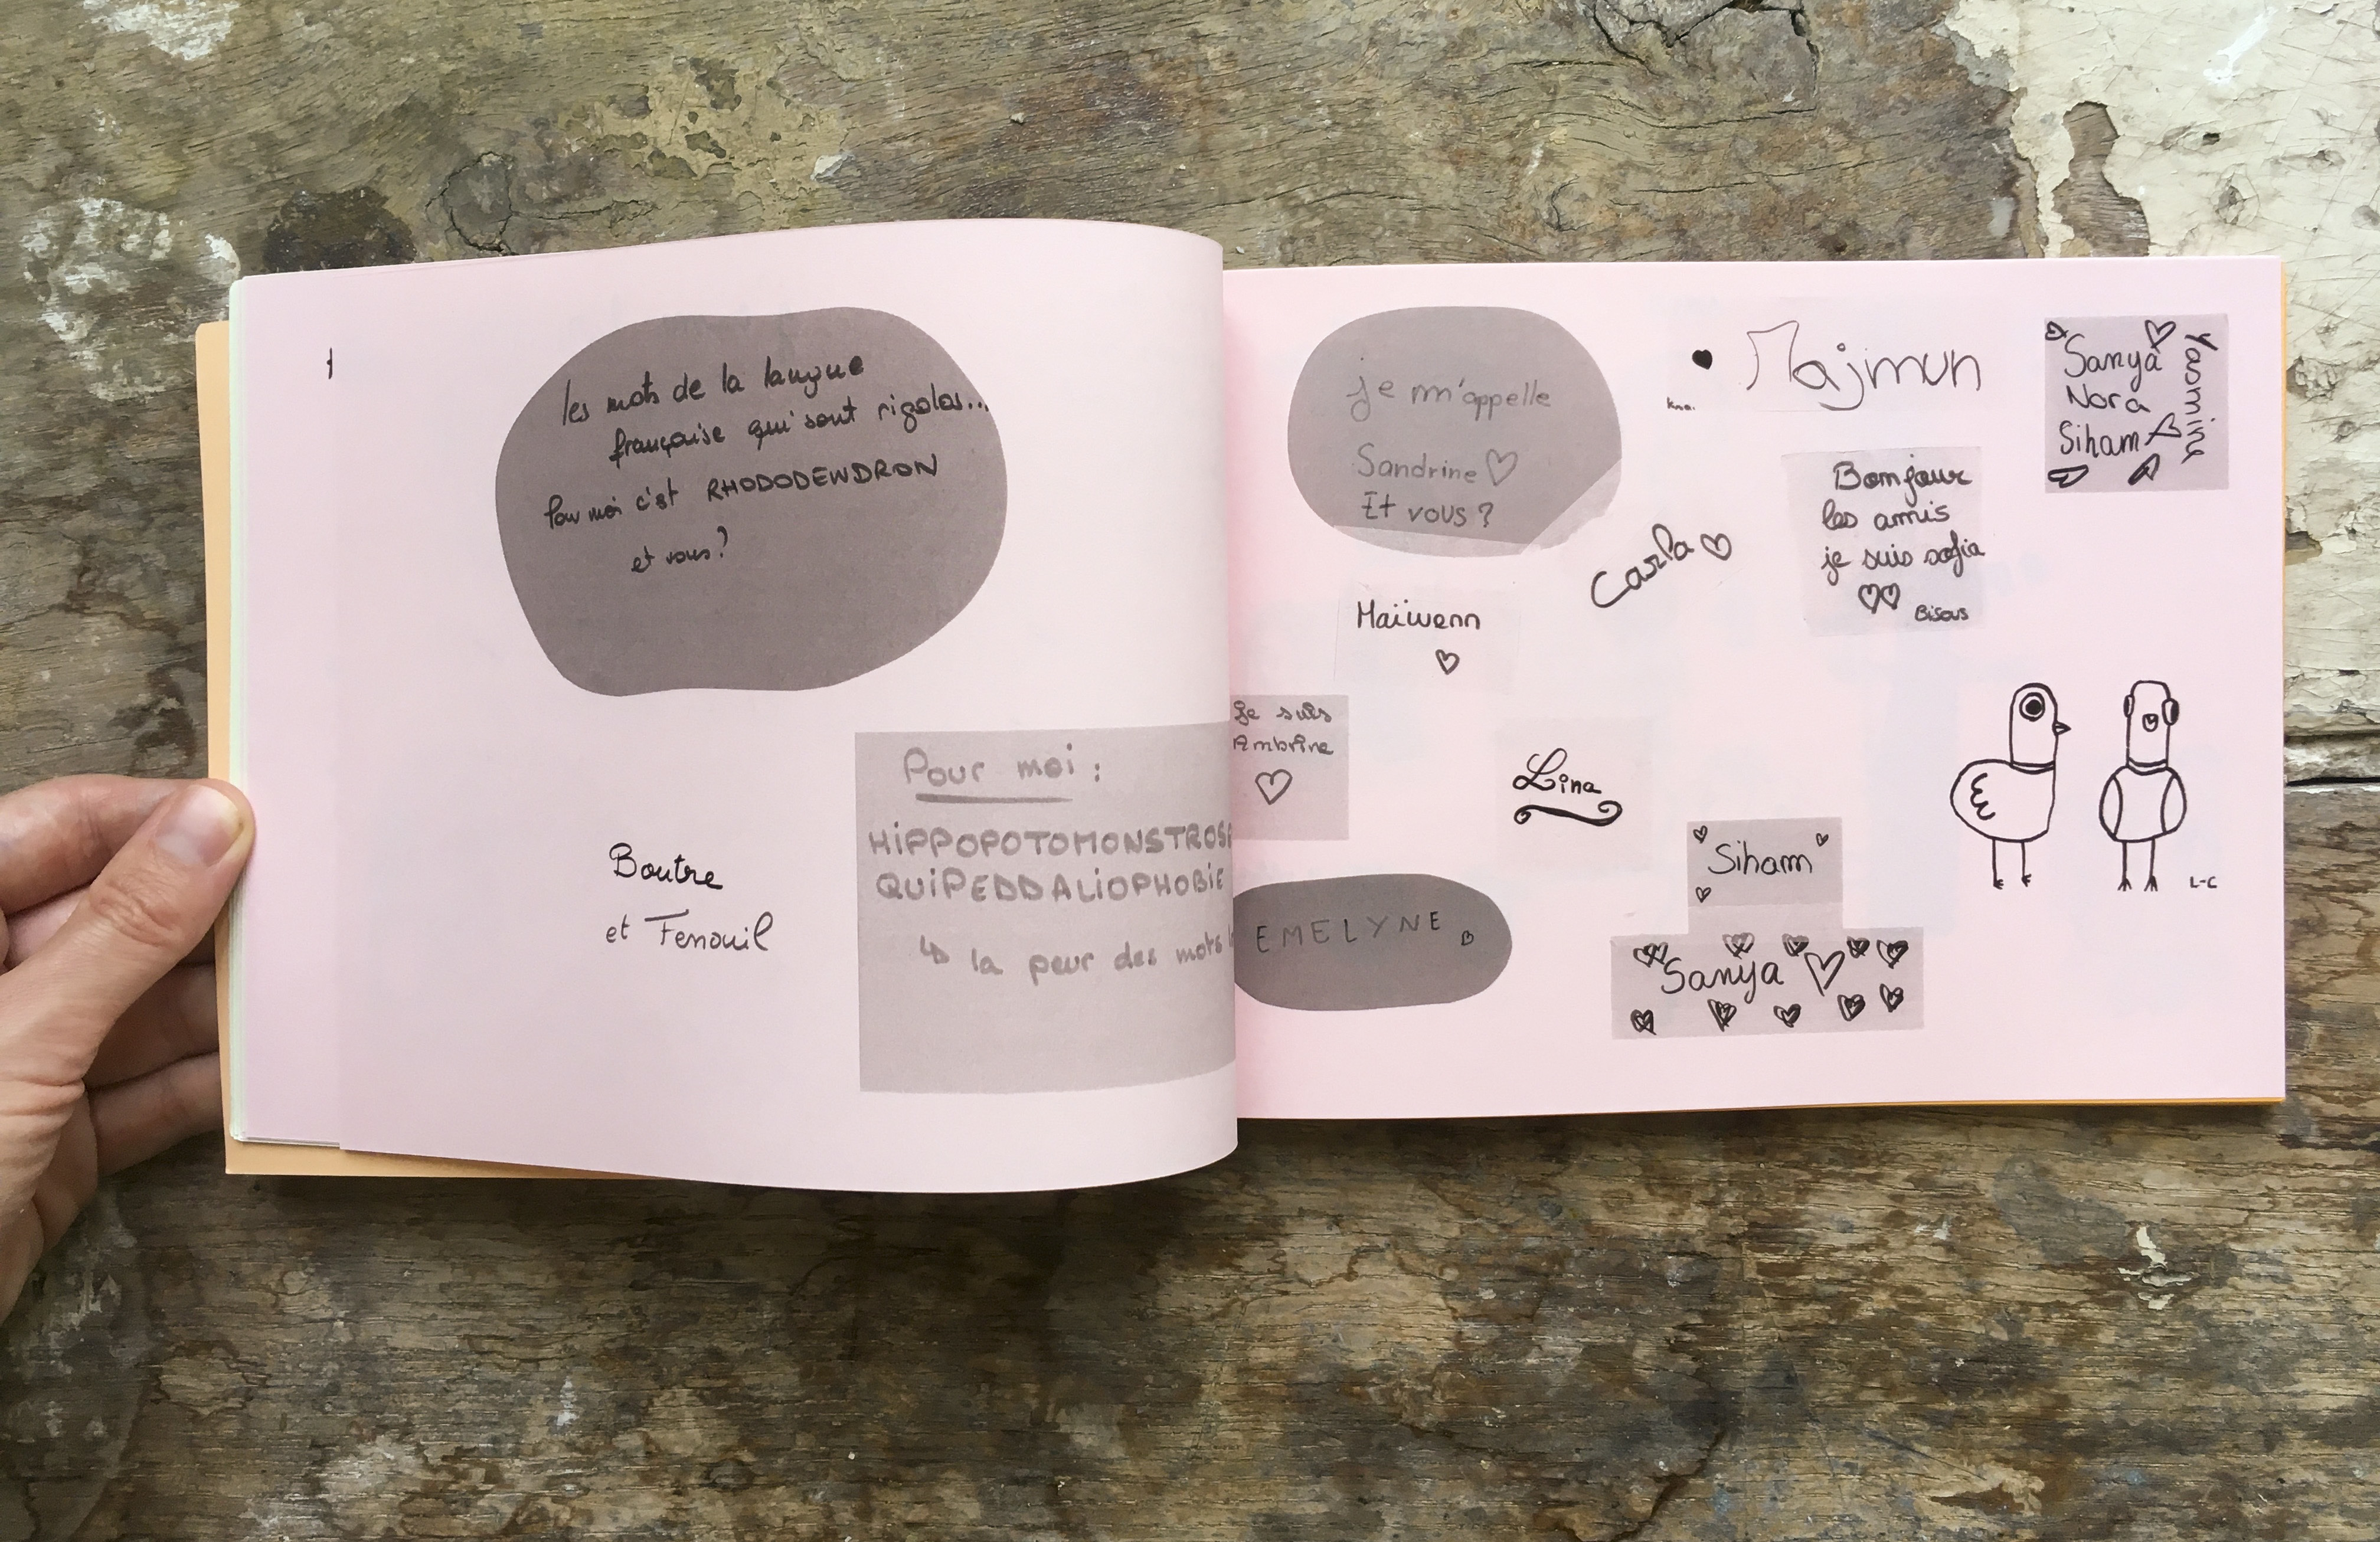 les mots de la langue
française qui sont rigolos...
Pour moi c'est RHODODENDRON
et vous?
Boutre
et Fenouil
Pour moi :
HiPPOPOTOMONSTROS
QUiPEDDALiOPHOBiE
↳ la peur des mots
je m'appelle
Sandrine ♡
Et vous ?
♥ Majmun
Sanya
Nora
Siham
Yasmine
Bonjour
les amis
je suis sofia
♡♡ Bisous
Carla ♡
Maïwenn
♡
Je suis
Ambrine
♡
Lina
Siham
Sanya ♡
EMELYNE
L-C